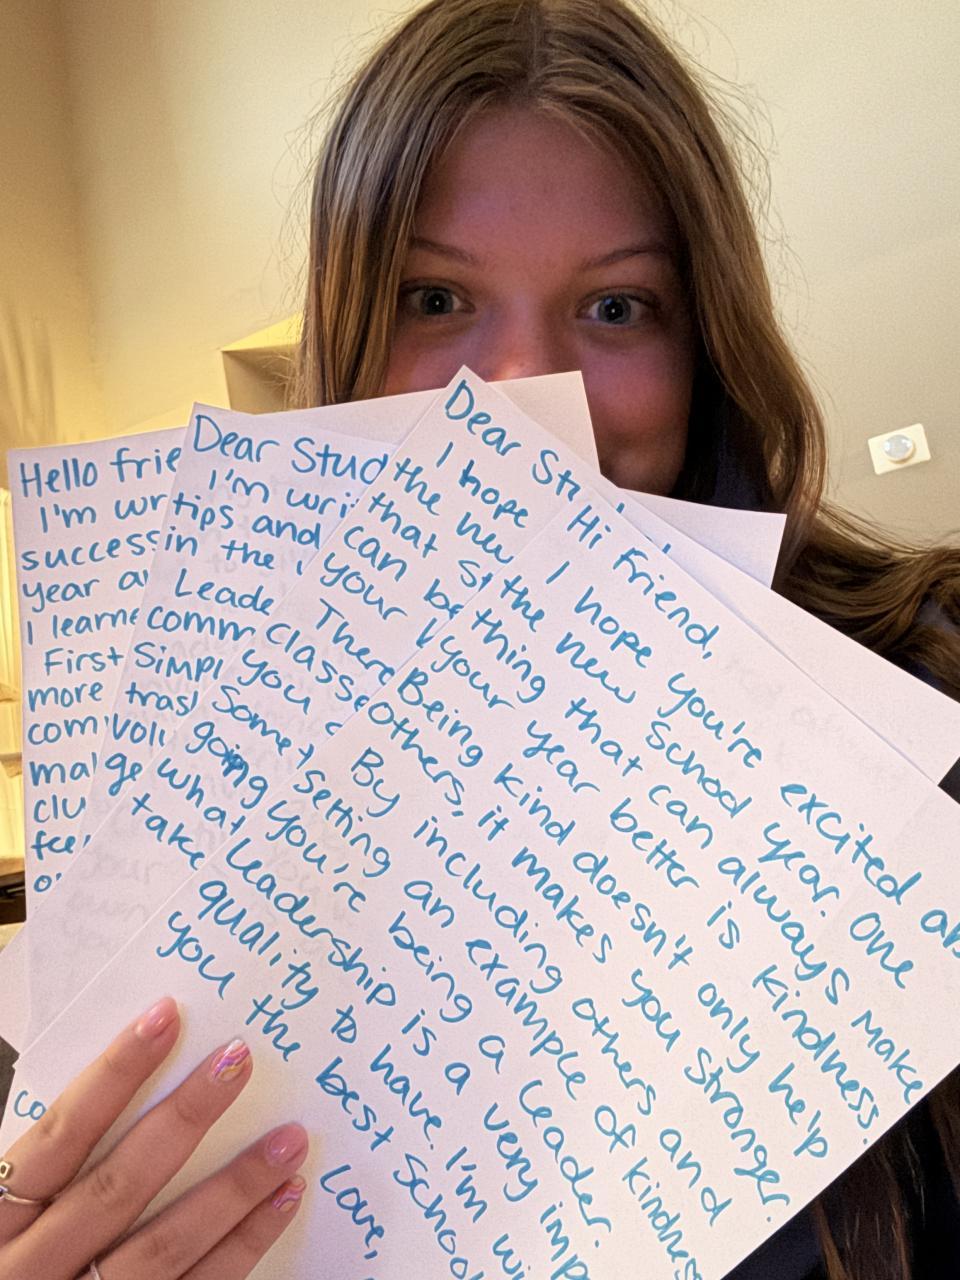 Hello frie
I'm wr
success
year a
I learne
First
more
com
ma
clu
fee
o
co
Dear Stud
I'm wri
tips and
in the
Leade
comm
simpl
tras
volu
ge
take
Dear St
I hope
the new
that
can be
your
There
classe
you
Some
going
what
Hi Friend,
I hope you're excited ab
the new school year. One
thing that can always make
your year better is kindness.
Being kind doesn't only help
others, it makes you stronger.
By including others and
setting an example of kindness
you're being a leader.
Leadership is a very imp
quality to have. I'm wi
you the best school
Love,